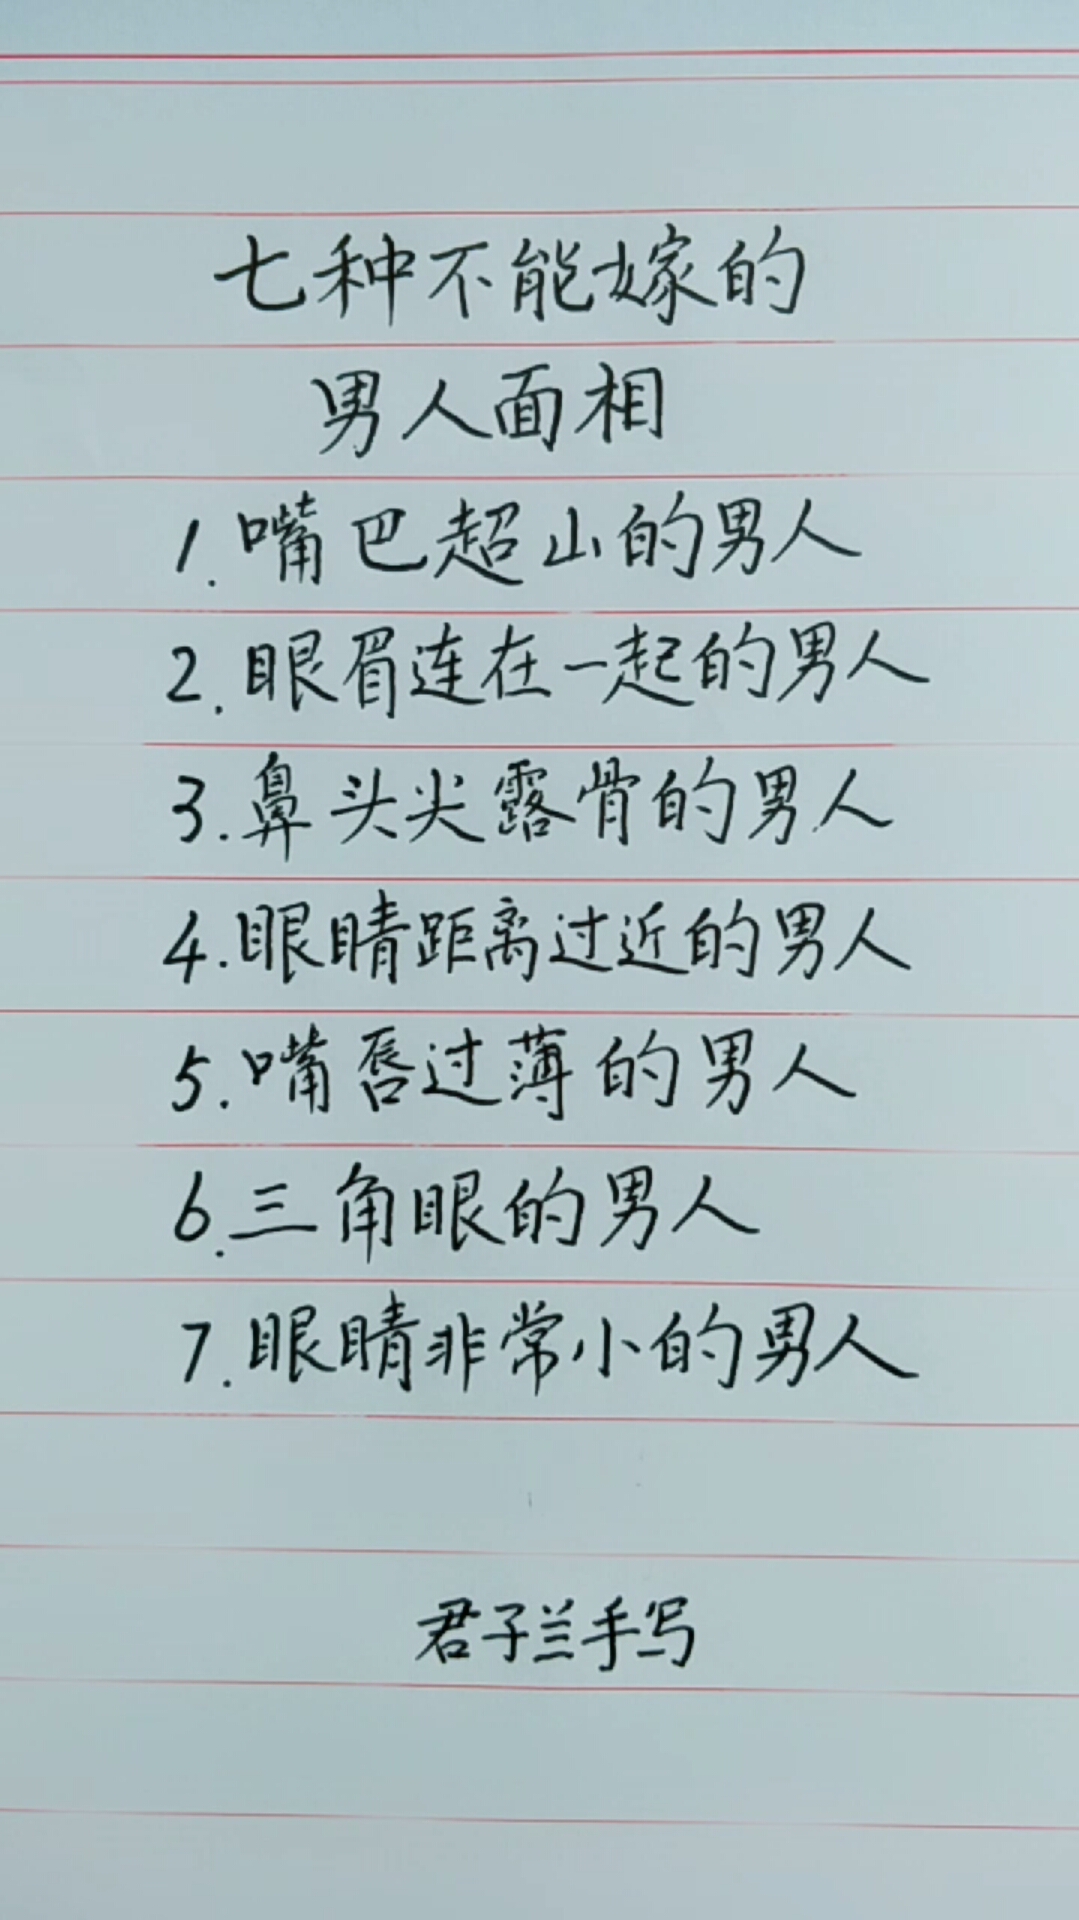 七种不能嫁的
男人面相
1.嘴巴超山的男人
2.眼眉连在一起的男人
3.鼻头尖露骨的男人
4.眼睛距离过近的男人
5.嘴唇过薄的男人
6.三角眼的男人
7.眼睛非常小的男人
君子兰手写